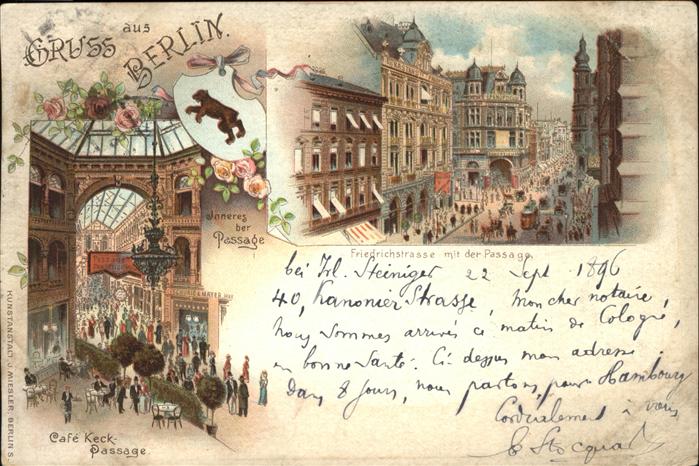 Gruss aus
Berlin.
Inneres
der
Passage
Friedrichstrasse mit der Passage.
Passage
Café Keck-
Passage.
KUNSTANSTALT J. MIESLER, BERLIN S.
bei Frl. Steiniger 22 Sept 1896
40, Kanonier Strasse, mon cher notaire,
nous sommes arrivés ce matin de Cologne,
en bonne santé. Ci-dessus mon adresse
Dans 8 jours, nous partons pour Hambourg
Cordialement à vous